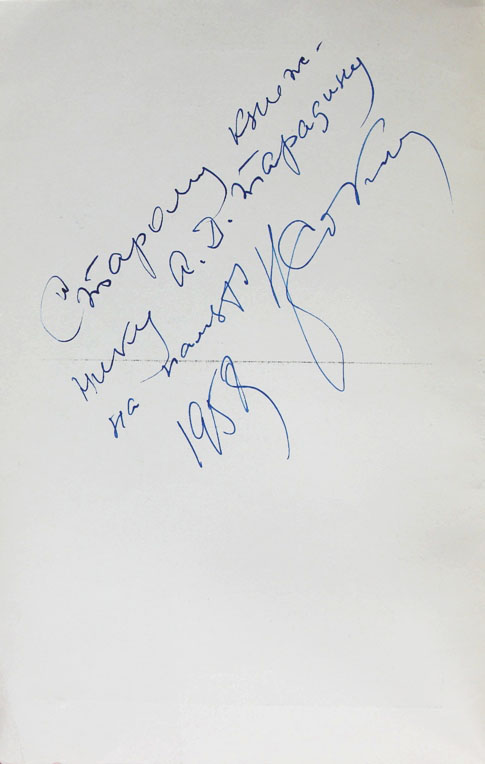 Старому книж-
нику А. Д. Тарадину
на память
1958